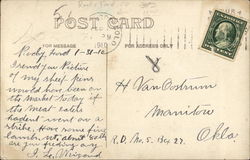 POST CARD
FOR MESSAGE
FOR ADDRESS ONLY
COLO
Rocky Ford 1-31-10
I send you Picture
of my sheep pens
would have been on
the Market Today if
the Meat eaters
hadent went on a
strike. Have some fine
Lambs yet, about
are you feeding any
H Van Oostrum
Manitou
Okla.
R.D. No. 5. Box 27.